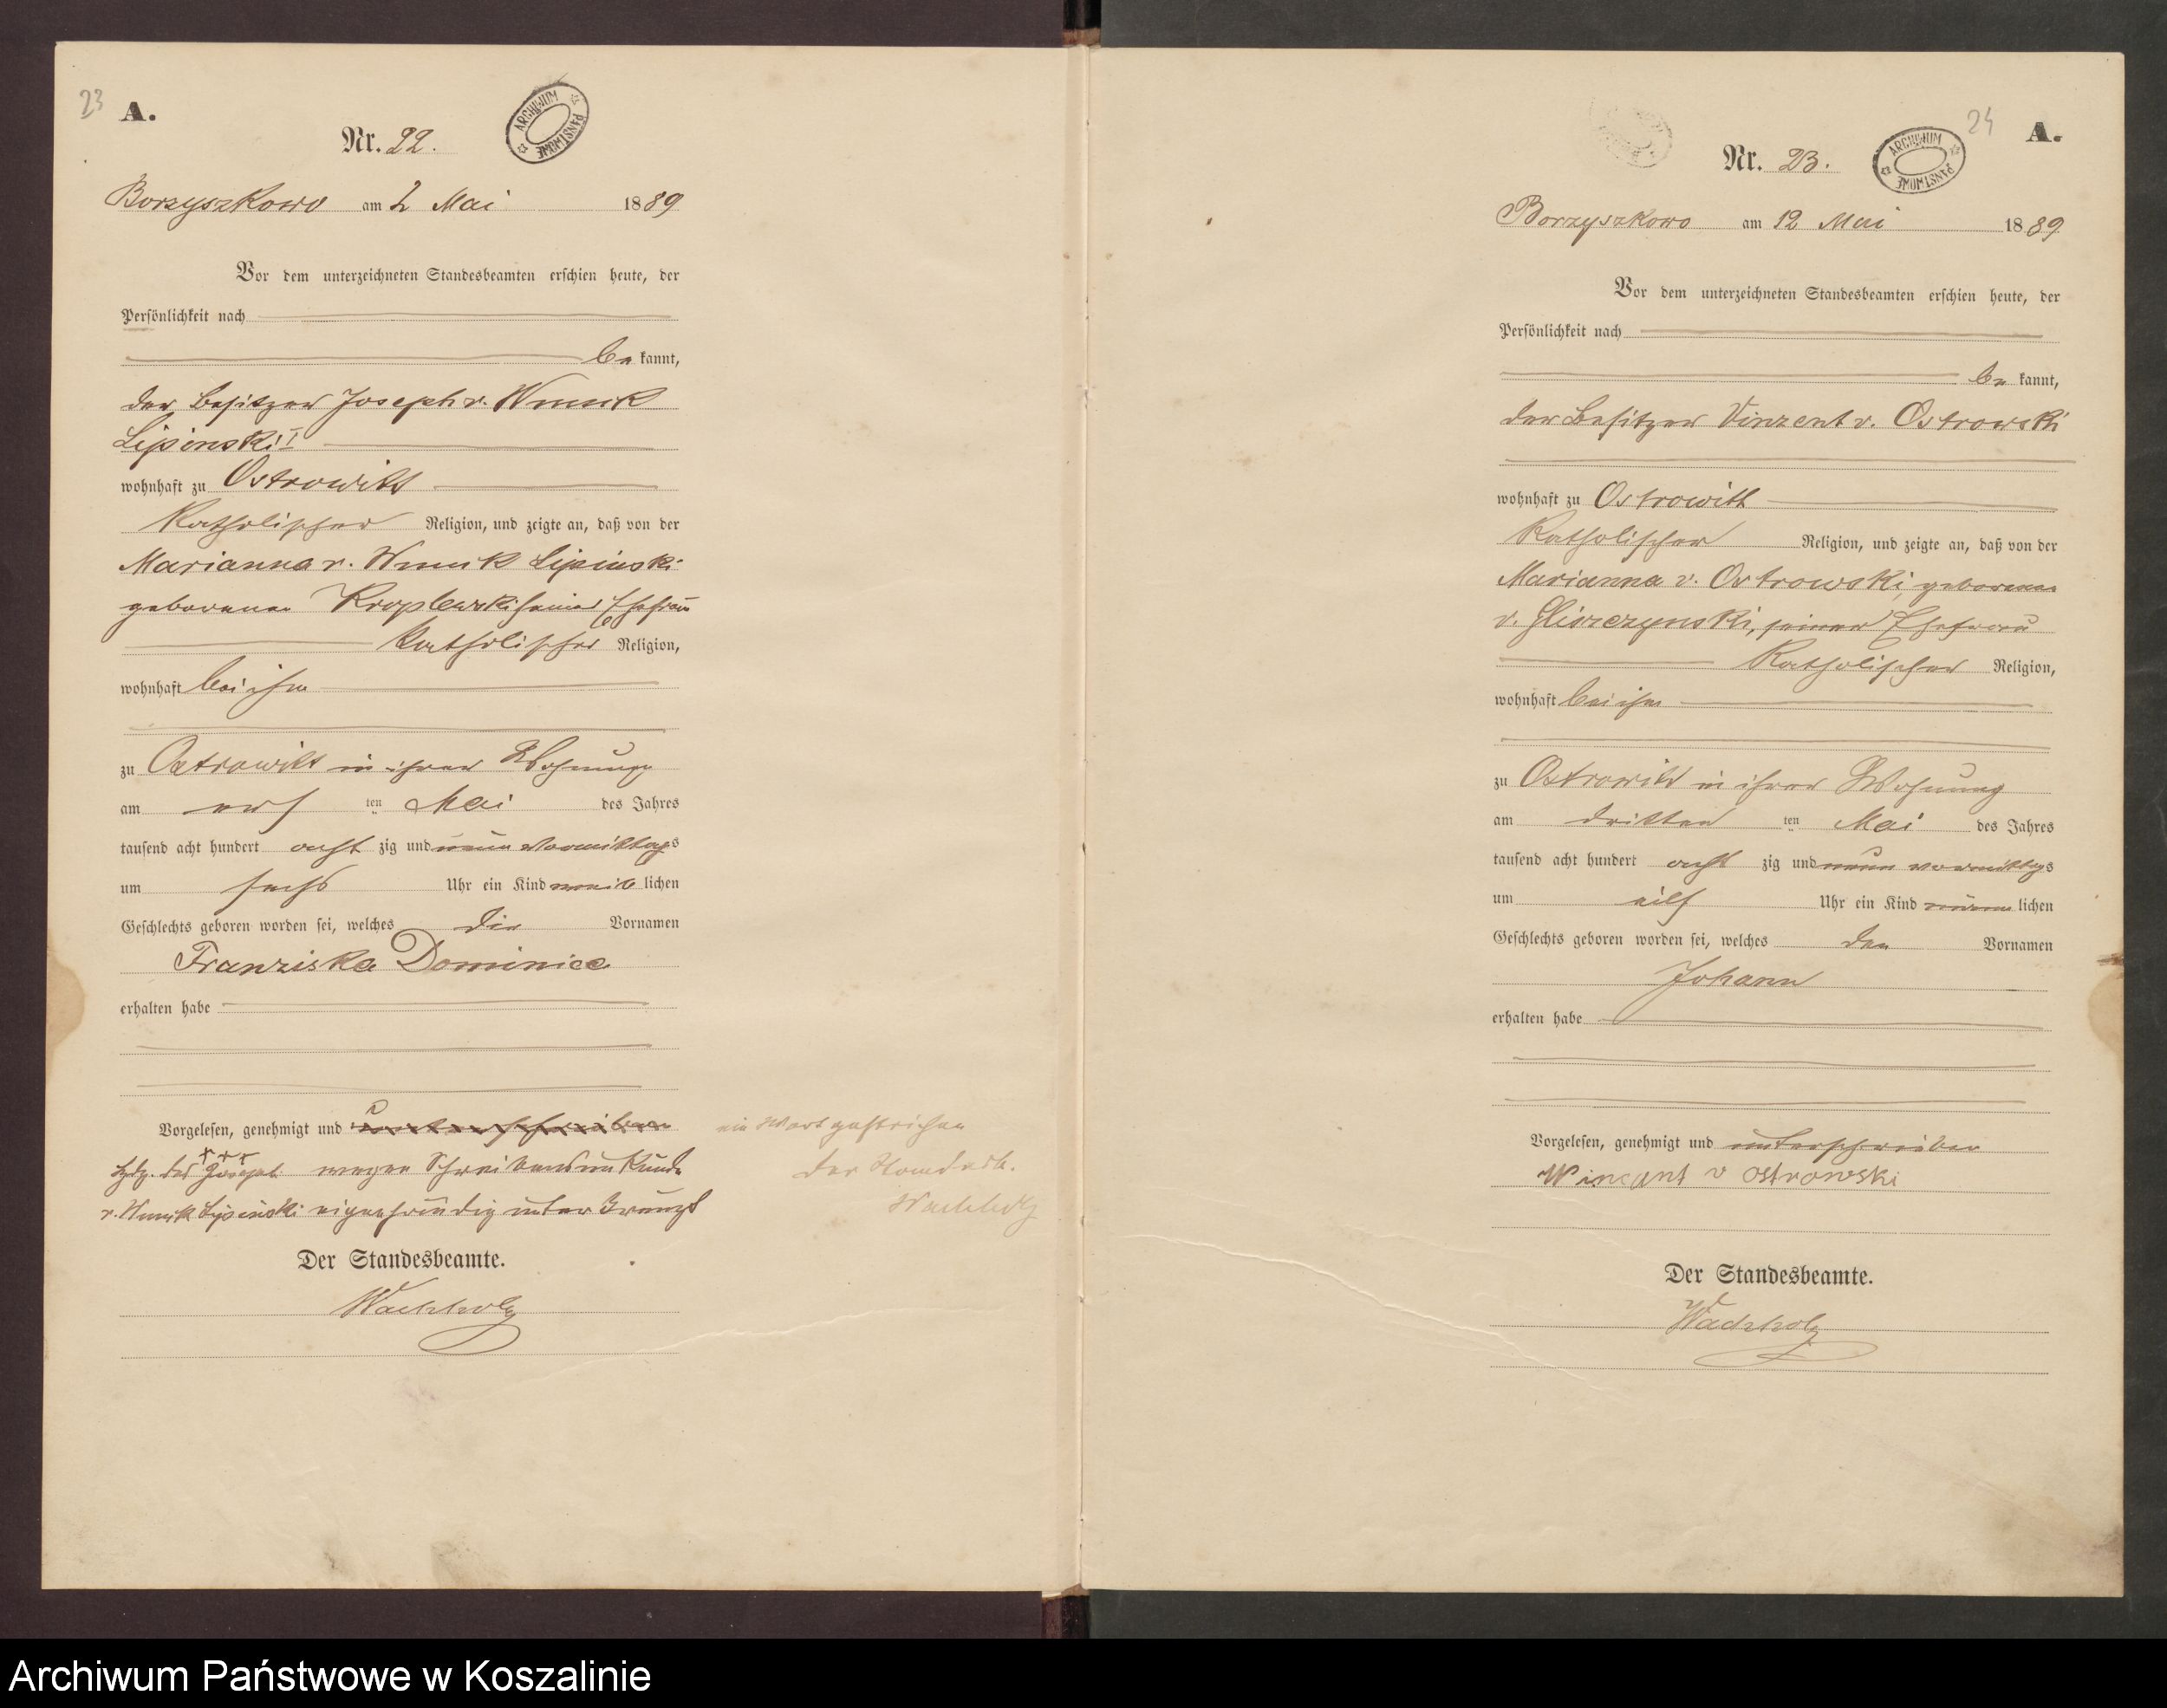 23
A.
ARCHIWUM PAŃSTWOWE
Nr. 22.
Borzyszkowo am 2 Mai 1889
Vor dem unterzeichneten Standesbeamten erschien heute, der
Persönlichkeit nach
be kannt,
der Besitzer Joseph v. Wnuck
Lipinski I
wohnhaft zu Ostrowitt
katholischer Religion, und zeigte an, daß von der
Marianna v. Wnuck Lipinski
geborenen Kroplewski seiner Ehefrau
katholischer Religion,
wohnhaft bei ihm
zu Ostrowitt in ihrer Wohnung
am ers ten Mai des Jahres
tausend acht hundert acht zig und neun Vormittags
um sechs Uhr ein Kind weib lichen
Geschlechts geboren worden sei, welches die Vornamen
Franziska Dominica
erhalten habe
Vorgelesen, genehmigt und unterschrieben
Hdz. des Joseph wegen Schreibensunkunde
v. Wnuck Lipinski eigenhändig unterkreuzt
Der Standesbeamte.
Wachholz
ein Wort gestrichen
Der Standesb.
Wachholz
24
A.
ARCHIWUM PAŃSTWOWE
Nr. 23.
Borzyszkowo am 12 Mai 1889
Vor dem unterzeichneten Standesbeamten erschien heute, der
Persönlichkeit nach
be kannt,
der Besitzer Vinzent v. Ostrowski
wohnhaft zu Ostrowitt
katholischer Religion, und zeigte an, daß von der
Marianna v. Ostrowski geborenen
v. Gliszczynski, seiner Ehefrau
katholischer Religion,
wohnhaft bei ihm
zu Ostrowitt in ihrer Wohnung
am dritten ten Mai des Jahres
tausend acht hundert acht zig und neun vormittags
um eilf Uhr ein Kind männ lichen
Geschlechts geboren worden sei, welches den Vornamen
Johann
erhalten habe
Vorgelesen, genehmigt und unterschrieben
Wincynt v Ostrowski
Der Standesbeamte.
Wachholz
Archiwum Państwowe w Koszalinie